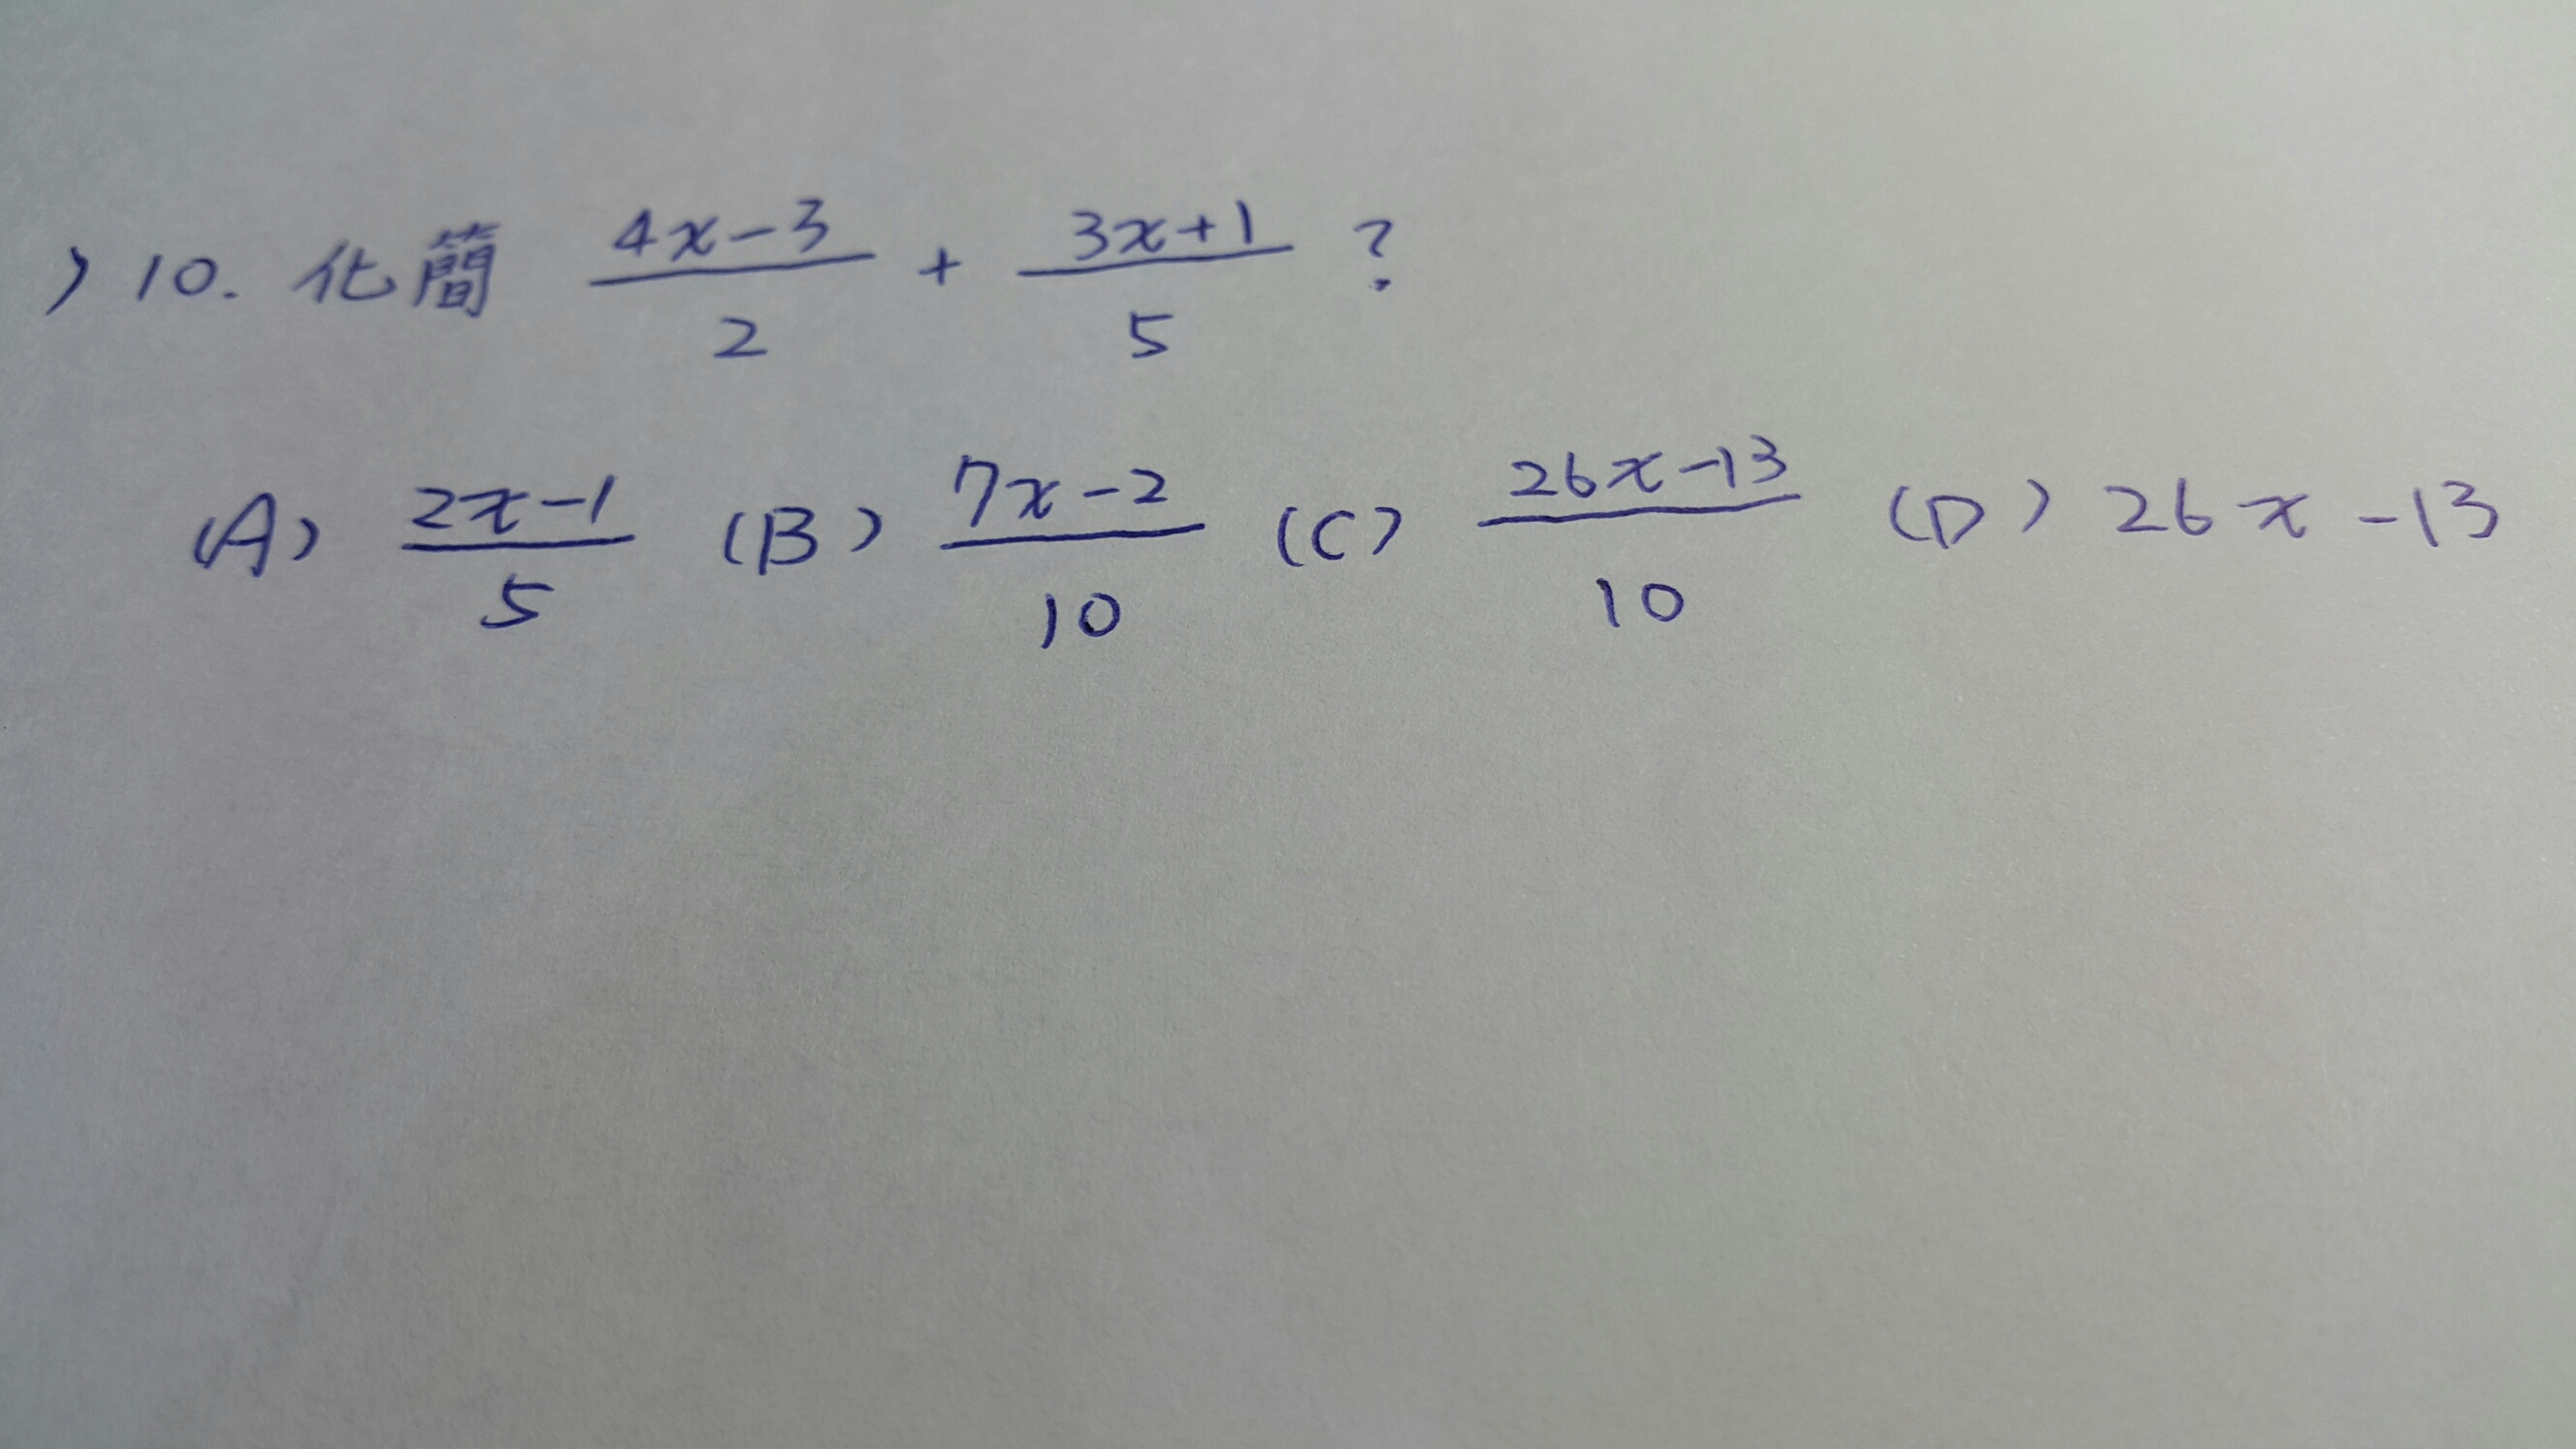 ) 10. 化簡 \frac{4x-3}{2} + \frac{3x+1}{5} ?
(A) \frac{2x-1}{5} (B) \frac{7x-2}{10} (C) \frac{26x-13}{10} (D) 26x-13